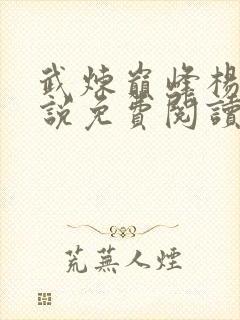 武煉巔峰楊
說免費閱讀
荒蕪人煙